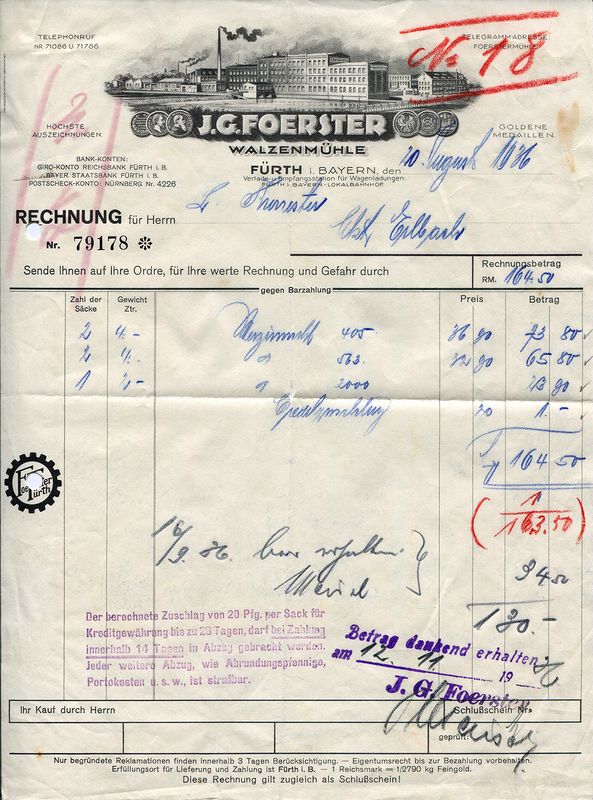 TELEPHONRUF
NR. 71086 U. 71766.
TELEGRAMM-ADRESSE:
FOERSTERMÜHLE
No 18
HÖCHSTE
AUSZEICHNUNGEN.
GOLDENE
MEDAILLEN.
J.G.FOERSTER
WALZENMÜHLE
BANK-KONTEN:
GIRO-KONTO REICHSBANK FÜRTH i. B.
BAYER. STAATSBANK FÜRTH i. B.
POSTSCHECK-KONTO: NÜRNBERG Nr. 4226
FÜRTH i. BAYERN, den 20 August 1936
Verlade- u. Empfangsstation für Wagenladungen:
FÜRTH i. BAYERN - LOKALBAHNHOF
RECHNUNG für Herrn
Nr. 79178 ✻
Sende Ihnen auf Ihre Ordre, für Ihre werte Rechnung und Gefahr durch
Rechnungsbetrag
RM. 164.50
gegen Barzahlung
Zahl der Säcke Gewicht Ztr. Preis Betrag
2 4.- 405 36 90 73 80
2 4.- 563. 32 90 65 80
1 2.- " 2000 23 90
20 1.-
164 50
1
163.50
bar erhalten
34 50
130.-
Der berechnete Zuschlag von 20 Pfg. per Sack für
Kreditgewährung bis zu 28 Tagen, darf bei Zahlung
innerhalb 14 Tagen in Abzug gebracht werden.
Jeder weitere Abzug, wie Abrundungspfennige,
Portokosten u. s. w., ist strafbar.
Betrag dankend erhalten
am 12. 11 19 36
J. G. Foerster
Ihr Kauf durch Herrn
Schlußschein Nr.
geprüft:
Nur begründete Reklamationen finden innerhalb 3 Tagen Berücksichtigung. — Eigentumsrecht bis zur Bezahlung vorbehalten.
Erfüllungsort für Lieferung und Zahlung ist Fürth i. B. — 1 Reichsmark = 1/2790 kg Feingold.
Diese Rechnung gilt zugleich als Schlußschein!